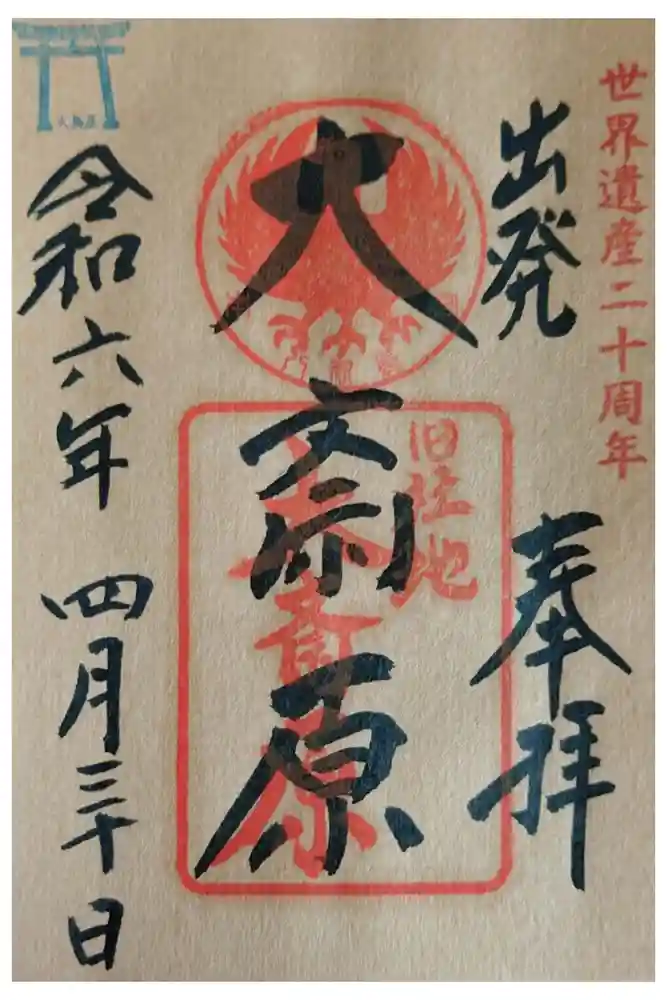 世界遺産二十周年
出発
奉拝
大斎原
旧社地
大斎原
令和六年 四月三十日
大鳥居